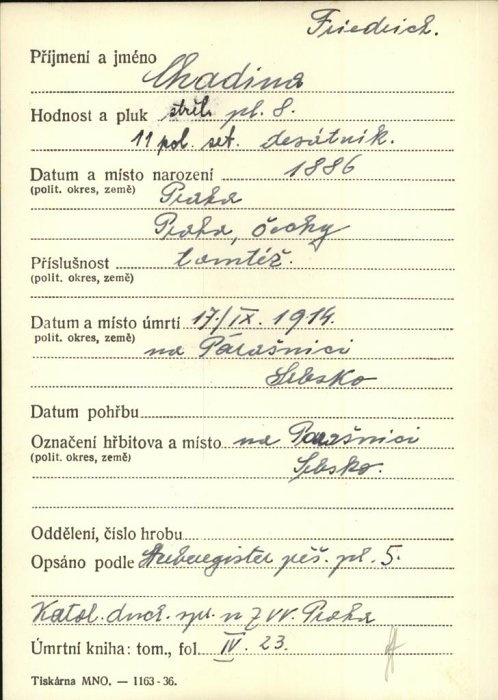 Friedrich.
Příjmení a jméno Chadina
Hodnost a pluk střel. pl. 8.
11 pol. set. desátník.
Datum a místo narození 1886
(polit. okres, země) Praha
Praha, Čechy
Příslušnost tomtéž.
(polit. okres, země)
Datum a místo úmrtí 17./IX. 1914.
polit. okres, země) na Parašnici
Srbsko
Datum pohřbu
Označení hřbitova a místo na Parašnici
(polit. okres, země) Srbsko.
Oddělení, číslo hrobu
Opsáno podle Sterberegister pěš. pl. 5.
Katol. duch. spr. u ZVV. Praha
Úmrtní kniha: tom., fol. IV. 23.
Tiskárna MNO. — 1163-36.